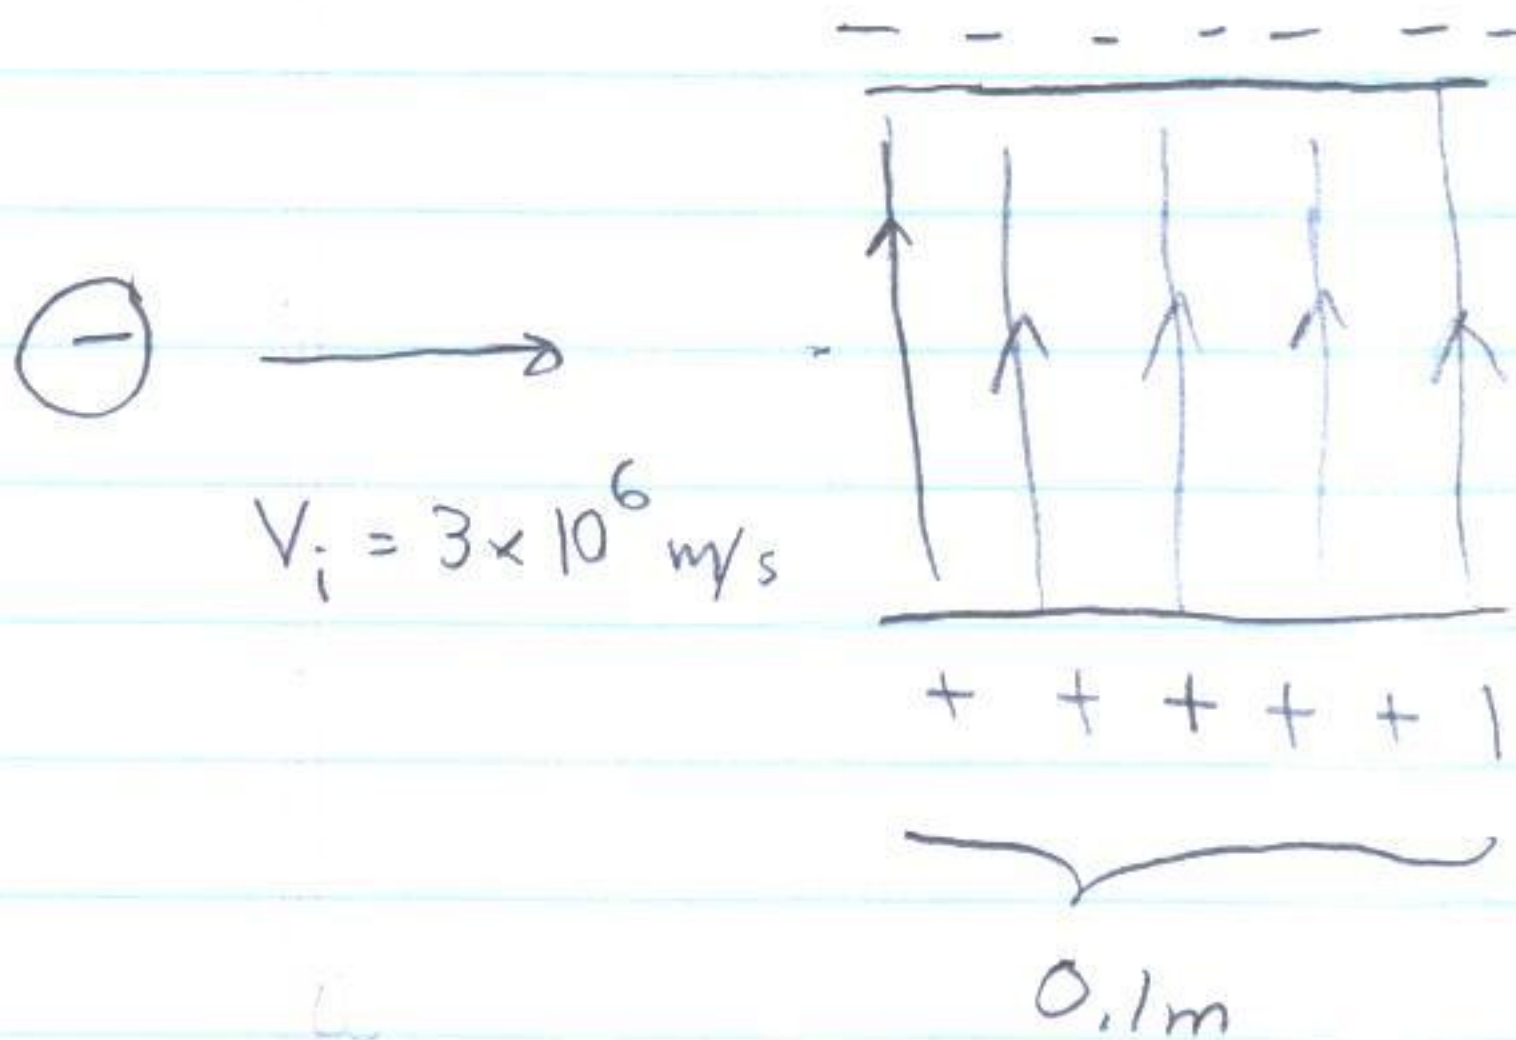 - - - - - - -
-
V_i = 3 × 10^6 m/s
+ + + + + |
0.1m